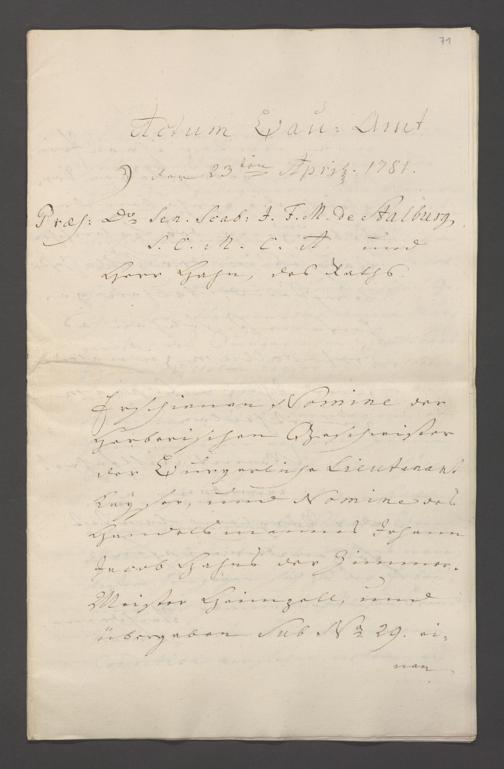 71
Actum Bau-Amt
☽ den 23ten April. 1781.
Præs: Dno Sen. Scab: J. F. M. de Stalburg,
S. C. M. C. A und
Herr Hahn, des Raths.
Erschienen Nomine der
Geschwister
der Bürgerliche Lieutenant
Kayser, und Nomine des
Handelsmannes Johann
Jacob Hahns der Zimmer-
Meister Heimpell, und
übergaben sub No 29. ei-
nen